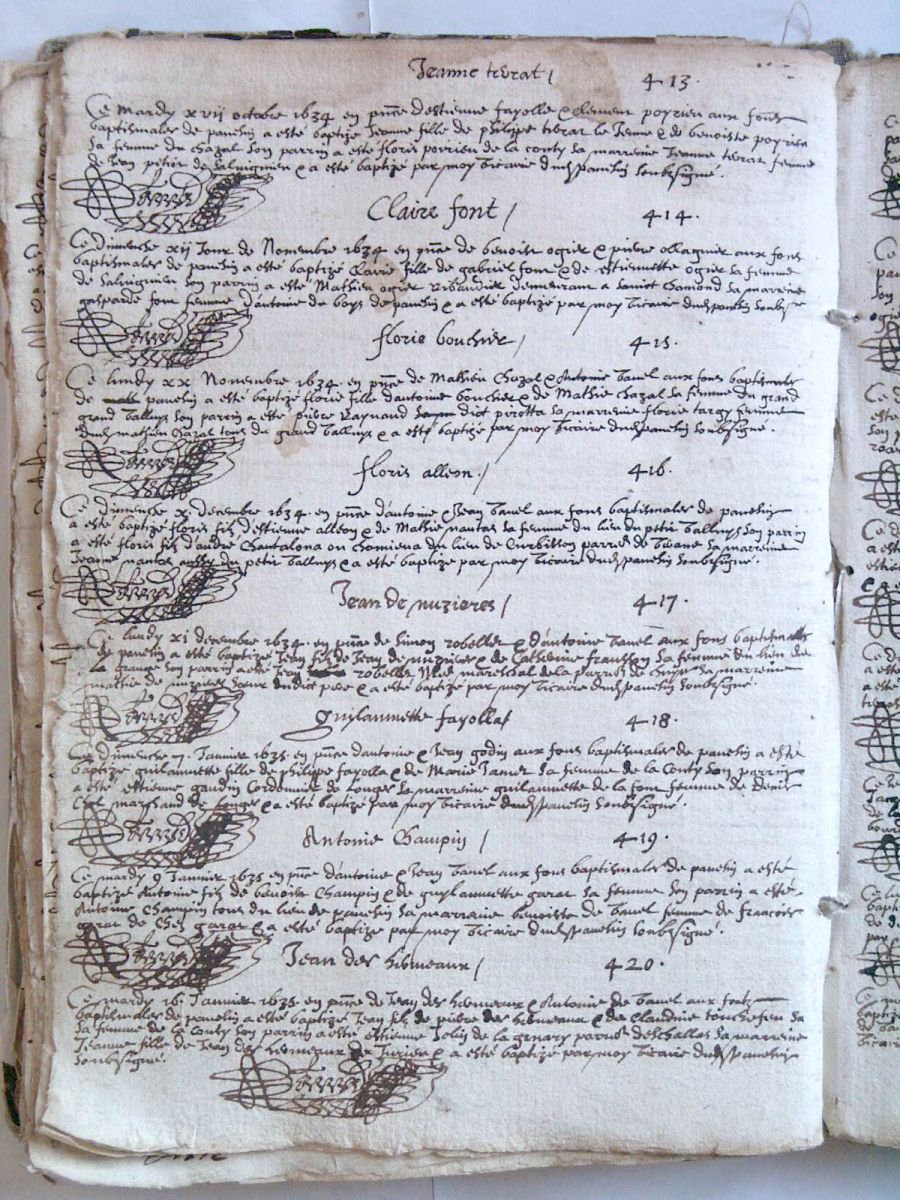 Jeanne teurat / 413.
Ce mardy xvij octobre 1634 en pñce d'estienne fayolle & clement poyrieu aux fons
baptismales de pauesin a esté baptizé Jeanne fille de philippe teurat le Jeune & de benoiste poyrieu
sa femme du chazal son parrin a esté floris poyrieu de la conty sa marreine Jeanne teurat femme
de Jean & a esté baptizé par moy vicaire dud pauesin soubsigné.
Claire font / 414.
Ce dimenche xij Jour de Nouembre 1634 en pñce de benoist ogier & pierre ollagnier aux fons
baptismales de pauesin a esté baptizé Claire fille de gabriel font & de estiennette ogier sa femme
de son parrin a esté Mathieu ogier demeurant a sainct chamond sa marreine
gasparde font femme d'antoine de boys de pauesin & a esté baptizé par moy vicaire dud pauesin soubsigné
florie bouchier / 415.
Ce lundy xx Nouembre 1634 en pñce de Mathieu chazal & Antoine vanel aux fons baptismales
de pauesin a esté baptizé florie fille d'antoine bouchier & de Mathie chazal sa femme du grand
grand balluys son parrin a esté pierre Raynaud dict pirotta sa marreine florie targy femme
dud mathieu chazal tous du grand balluys & a esté baptizé par moy vicaire dud pauesin soubsigné.
floris alleon / 416.
Ce dimenche x decembre 1634 en pñce d'antoine & Jean vanel aux fons baptismales de pauesin
a esté baptizé floris filz d'estienne alleon & de Mathie nantas sa femme du lieu du petit balluys son parrin
a esté floris filz d'andré Chantalona ou du lieu de sa marreine
Jeanne nantas aussy du petit balluys & a esté baptizé par moy vicaire dud pauesin soubsigné.
Jean de nuzieres / 417
Ce lundy xi decembre 1634 en pñce de simon robellet & d'antoine vanel aux fons baptismalles
de pauesin a esté baptizé Jean filz de Jean de nuzieres & de Catherine sa femme du lieu de
la grange son parrin a esté Jean robellet marechal de la parroisse de sa marreine
mathie de nuzieres seur dudict pere & a esté baptizé par moy vicaire dud pauesin soubsigné
guillaumette fayollas 418.
Ce dimenche 7. Januier 1635 en pñce d'antoine & Jean godin aux fons baptismales de pauesin a esté
baptizé guilaumette fille de philippe fayolla & de Marie Janet sa femme de la Conty son parrin
a esté estienne gaudin Cordonnier de Longes sa marreine guilaumette de la font femme de denis
marchand de Longes & a esté baptizé par moy vicaire dud pauesin soubsigné.
Antoine Champin / 419.
Ce mardy 9 Januier 1635 en pñce d'antoine & Jean vanel aux fons baptismales de pauesin a esté
baptizé Antoine filz de benoist Champin & de guylaumette garat sa femme son parrin a esté
Antoine Champin tous du lieu de pauesin sa marreine benoiste de vanel femme de francois
garat de chez garat & a esté baptizé par moy vicaire dud pauesin soubsigné.
Jean des hormeaux / 420.
Ce mardy 16 Januier 1635 en pñce de Jean des hormeaux & Antoine de vanel aux fontz
baptismales de pauesin a esté baptizé Jean filz de pierre des hormeaux & de Claudine touchefeu sa
sa femme de la conty son parrin a esté estienne Jolis de la parroisse deschallas sa marreine
Jeanne fille de Jean des hormeaux de & a esté baptizé par moy vicaire dud pauesin
soubsigné